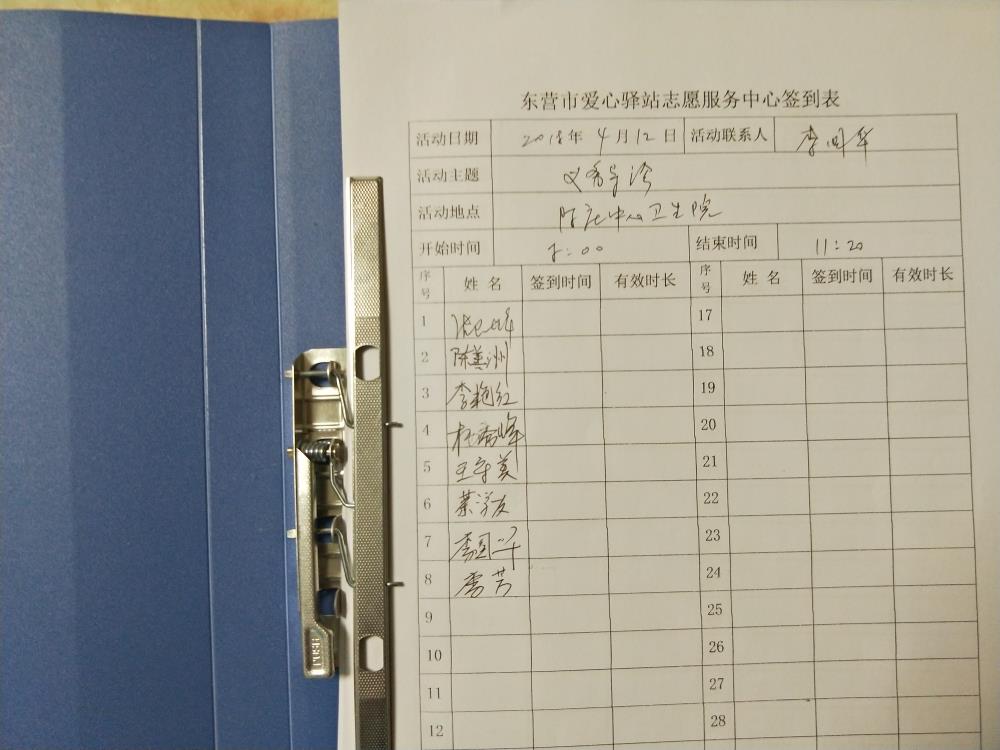 东营市爱心驿站志愿服务中心签到表
活动日期 2018年 4月12日 活动联系人 李国华
活动主题
活动地点 陈庄中心卫生院
开始时间 8:00 结束时间 11:20
序号 姓名 签到时间 有效时长 序号 姓名 签到时间 有效时长
1 17
2 陈美洲 18
3 李艳红 19
4 杜希峰 20
5 王守美 21
6 蔡学友 22
7 李国华 23
8 李芳 24
9 25
10 26
11 27
12 28
PUSH